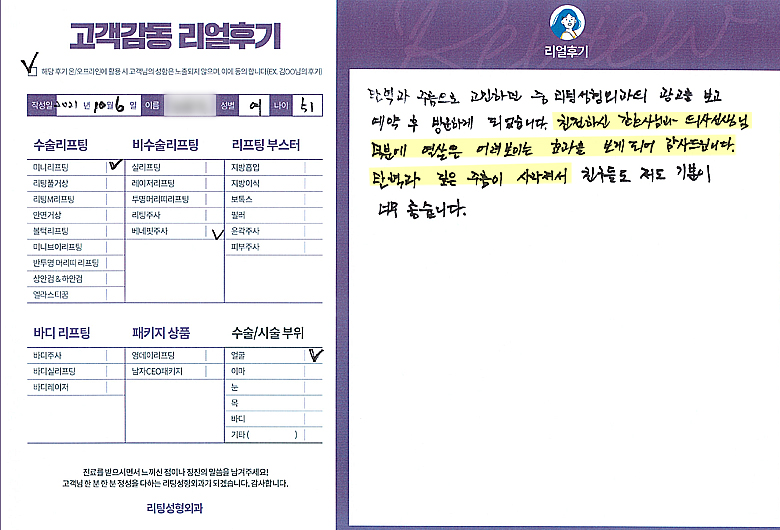 고객감동 리얼후기
해당 후기 온/오프라인에 활용 시 고객님의 성함은 노출되지 않으며, 이에 동의합니다(EX. 김OO님의 후기)
작성일 2021 년 10월 6 일 이름 성별 여 나이 51
수술리프팅
미니리프팅
리팅풀거상
리팅M리프팅
안면거상
볼턱리프팅
미니브이리프팅
반투명 머리띠 리프팅
상안검 & 하안검
엘라스티꿈
비수술리프팅
실리프팅
레이저리프팅
투명머리띠리프팅
리팅주사
베네핏주사
리프팅 부스터
지방흡입
지방이식
보톡스
필러
윤곽주사
피부주사
바디 리프팅
바디주사
바디실리프팅
바디레이저
패키지 상품
영데이리프팅
남자CEO패키지
수술/시술 부위
얼굴
이마
눈
목
바디
기타 ( )
진료를 받으시면서 느끼신 점이나 칭찬의 말씀을 남겨주세요!
고객님 한 분 한 분 정성을 다하는 리팅성형외과가 되겠습니다. 감사합니다.
리팅성형외과
Review
리얼후기
탄력과 주름으로 고민하던 중 리팅성형외과의 광고를 보고
예약 후 방문하게 되었습니다. 친절하신 간호사님과 의사선생님
덕분에 열살은 어려보이는 효과를 보게 되어 감사드립니다.
탄력과 깊은 주름이 사라져서 친구들도 저도 기분이
너무 좋습니다.